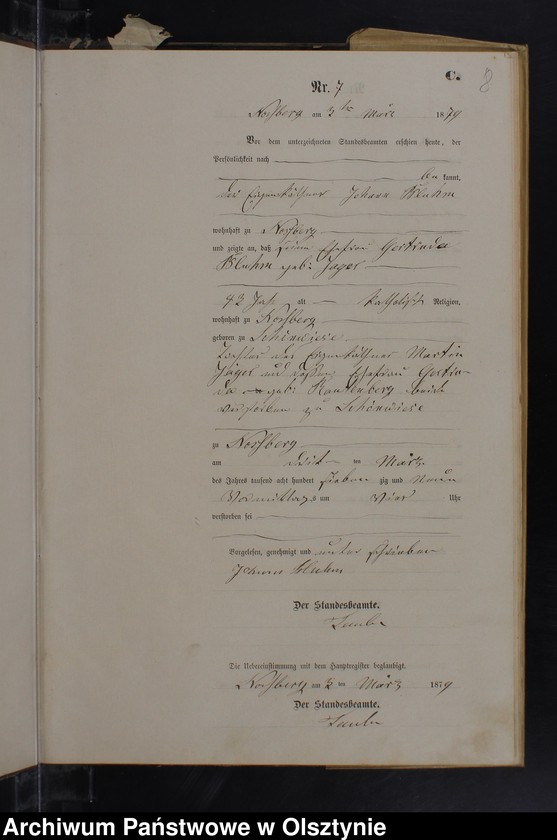 C.
8
Nr. 7
am 3ten März 1879
Vor dem unterzeichneten Standesbeamten erschien heute, der
Persönlichkeit nach
be kannt,
der Eigenkäthner Johann Bluhm
wohnhaft zu Noßberg
und zeigte an, daß seine Ehefrau Gertruda
Bluhm geb: Jäger
43 Jahr alt katholisch Religion,
wohnhaft zu Noßberg
geboren zu Schönwiese
Tochter des Eigenkäthner Martin
Jäger und dessen Ehefrau Gertru-
da geb: beide
verstorben zu Schönwiese
zu Noßberg
am März
des Jahrs tausend acht hundert sieben zig und Neun
Vormittags um Vier Uhr
verstorben sei
Vorgelesen, genehmigt und unterschrieben
Johann Bluhm
Der Standesbeamte.
Die Uebereinstimmung mit dem Hauptregister beglaubigt.
Noßberg am 3ten März 1879
Der Standesbeamte.
Archiwum Państwowe w Olsztynie